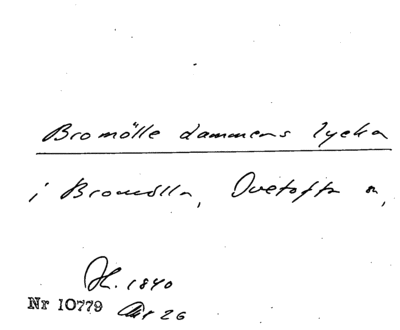 Bromölle dammens lycka
i Bromölla, Ivetofta sn,
Sk. 1840
Nr 10779 Akt 26